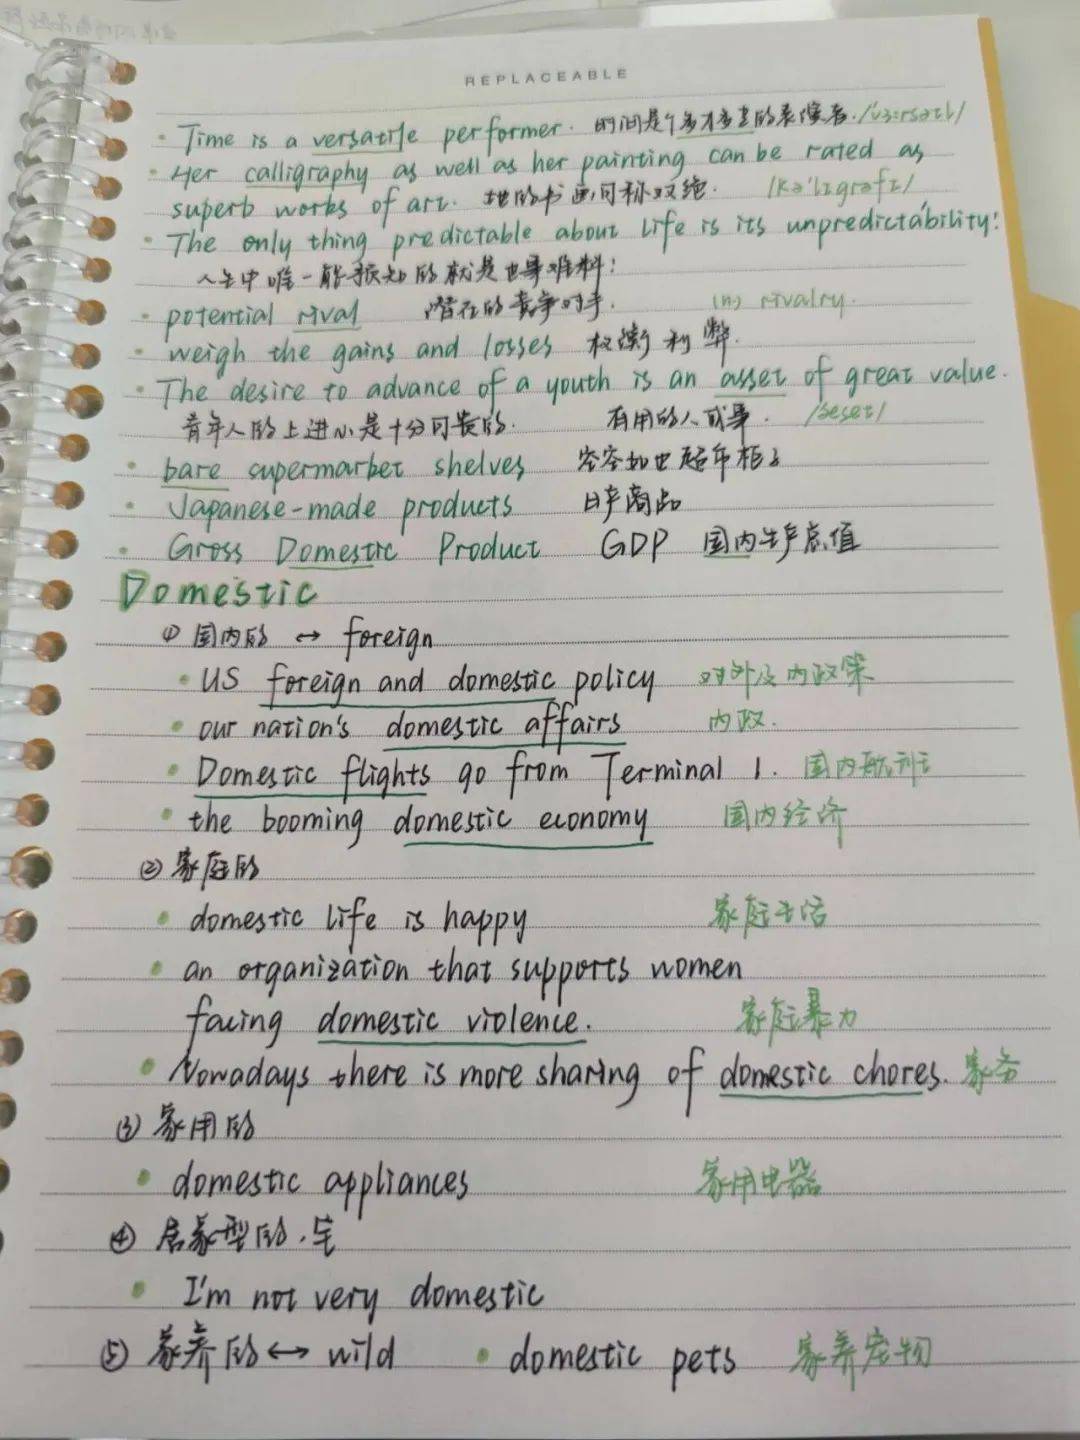 REPLACEABLE
· Time is a versatile performer. 时间是个多才多艺的表演者. /'vɜ:rsətl/
· Her calligraphy as well as her painting can be rated as
superb works of art. 她的书画可称双绝. /kə'lɪgrəfɪ/
· The only thing predictable about life is its unpredictability!
人生中唯一能预知的就是世事难料!
· potential rival 潜在的竞争对手. (n) rivalry.
· weigh the gains and losses 权衡利弊.
· The desire to advance of a youth is an asset of great value.
青年人的上进心是十分可贵的. 有用的人或事. /æset/
· bare supermarket shelves 空空如也超市柜子
· Japanese-made products 日产商品
· Gross Domestic Product GDP 国内生产总值
Domestic
① 国内的 ↔ foreign
· US foreign and domestic policy 对外及内政策
· our nation's domestic affairs 内政.
· Domestic flights go from Terminal 1. 国内航班
· the booming domestic economy 国内经济
② 家庭的
· domestic life is happy 家庭生活
· an organization that supports women
facing domestic violence. 家庭暴力
· Nowadays there is more sharing of domestic chores. 家务
③ 家用的
· domestic appliances 家用电器
④ 居家型的.宅
· I'm not very domestic
⑤ 家养的 ↔ wild · domestic pets 家养宠物